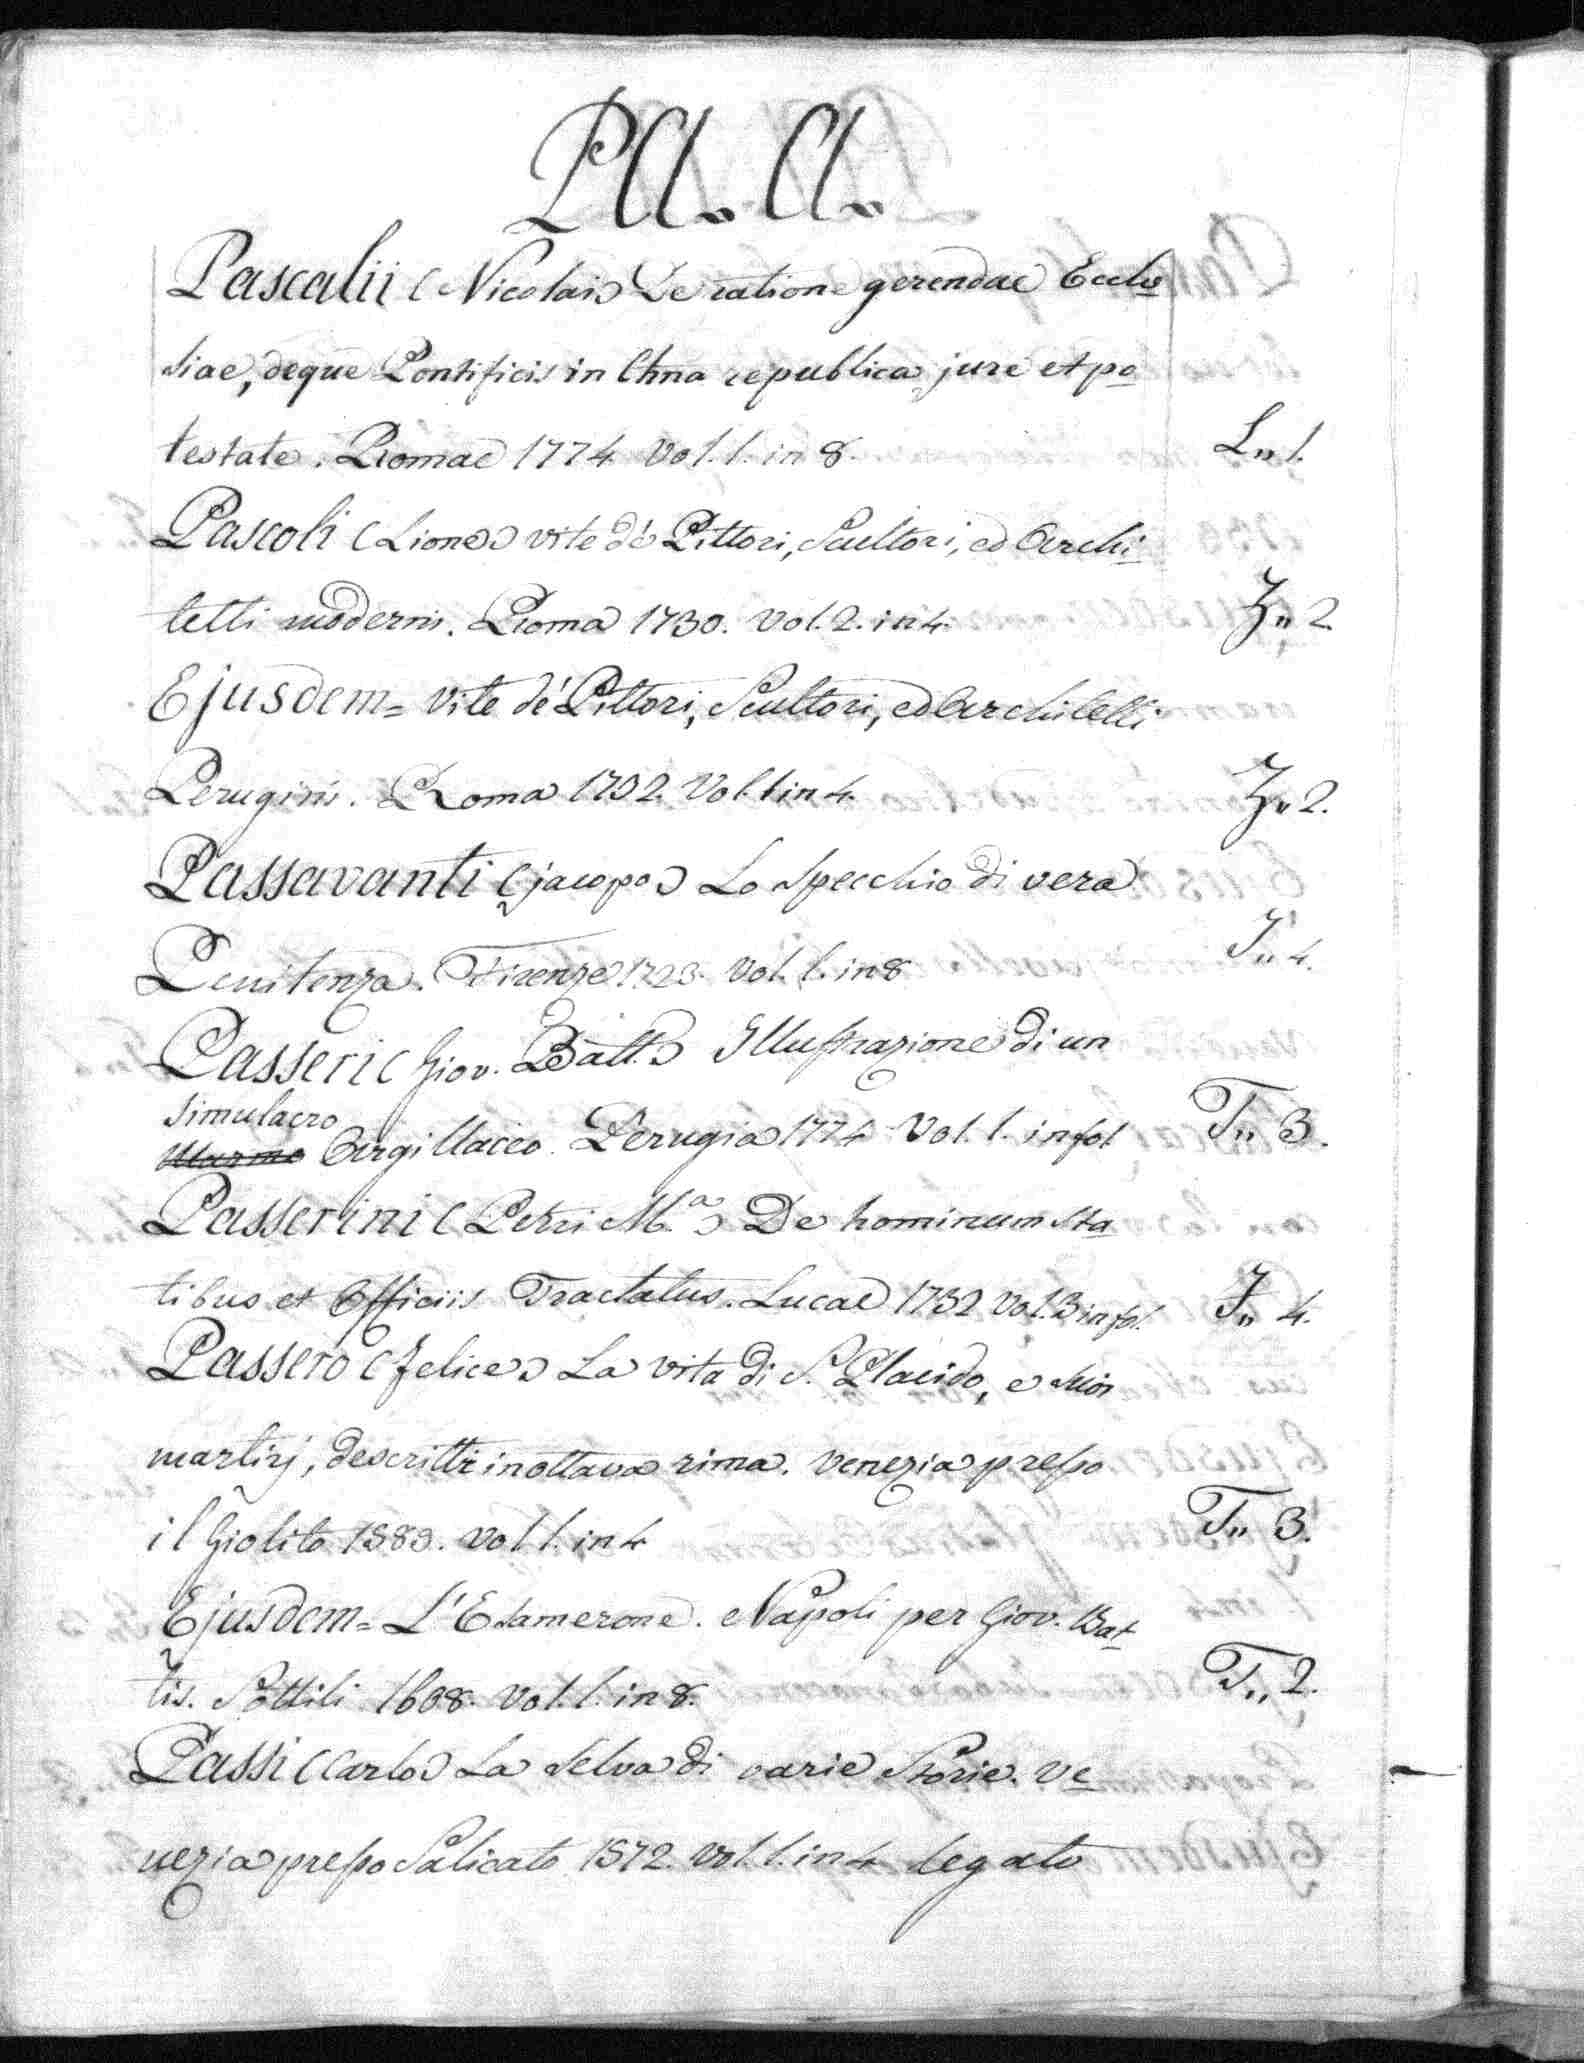 PA. A.
Pascalii (Nicolai) De ratione gerendae Eccle
siae, deque Pontificis in Chna republica jure et po
testate. Romae 1774 Vol. 1. in 8. L,, 1.
Pascoli (Lione) vite de' Pittori, Scultori, ed Archi
tetti moderni. Roma 1730. Vol. 2. in 4. Z,, 2
Ejusdem = Vite de' Pittori, Scultori, ed Architetti
Perugini. Roma 1732. Vol. 1 in 4. Z,, 2.
Passavanti (jacopo) Lo Specchio di vera
Penitenza. Firenze 1723. Vol. 1. in 8 I,, 4.
Passeri (Giov. Batt.) Illustrazione di un
simulacro
Marmo Argillaceo. Perugia 1774 Vol. 1. in fol T,, 3.
Passerini (Petri M.a) De hominum sta
tibus et Officiis Tractatus. Lucae 1732 Vol. 3 in fol. I,, 4.
Passero (felice) La vita di S. Placido, e suoi
martirj, descritti in ottava rima. Venezia presso
il Giolito 1589. Vol 1. in 4 T,, 3.
Ejusdem = L'Esamerone. Napoli per Giov. Bat
tis. Sottili 1608. Vol. 1. in 8. T,, 2.
Passi (Carlo) La Selva di varie Storie. Ve
nezia presso Salicato 1572. Vol. 1. in 4 legato